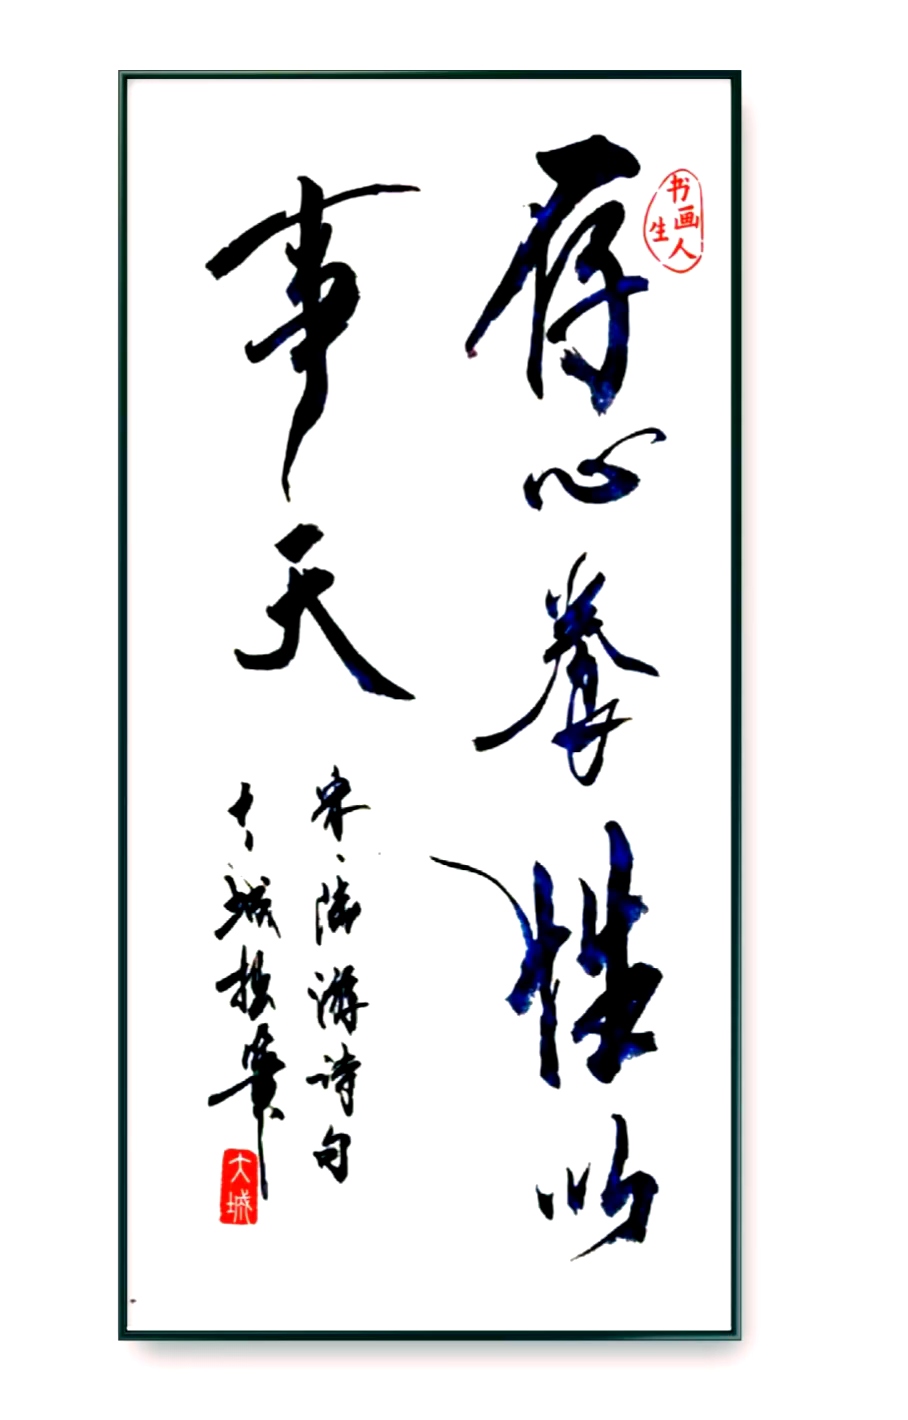 书画人生
存心养性以
事天
宋、陆游诗句
大城拙筆
大城